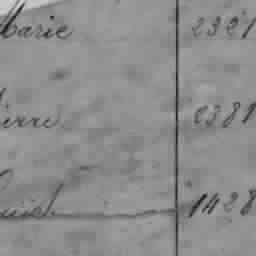 Marie 2321
ierre 2381
1428